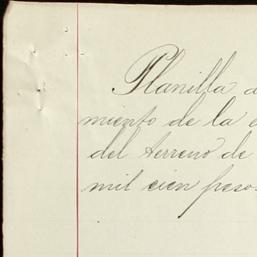 Planilla d
miento de la e
del terreno de
mil cien peso